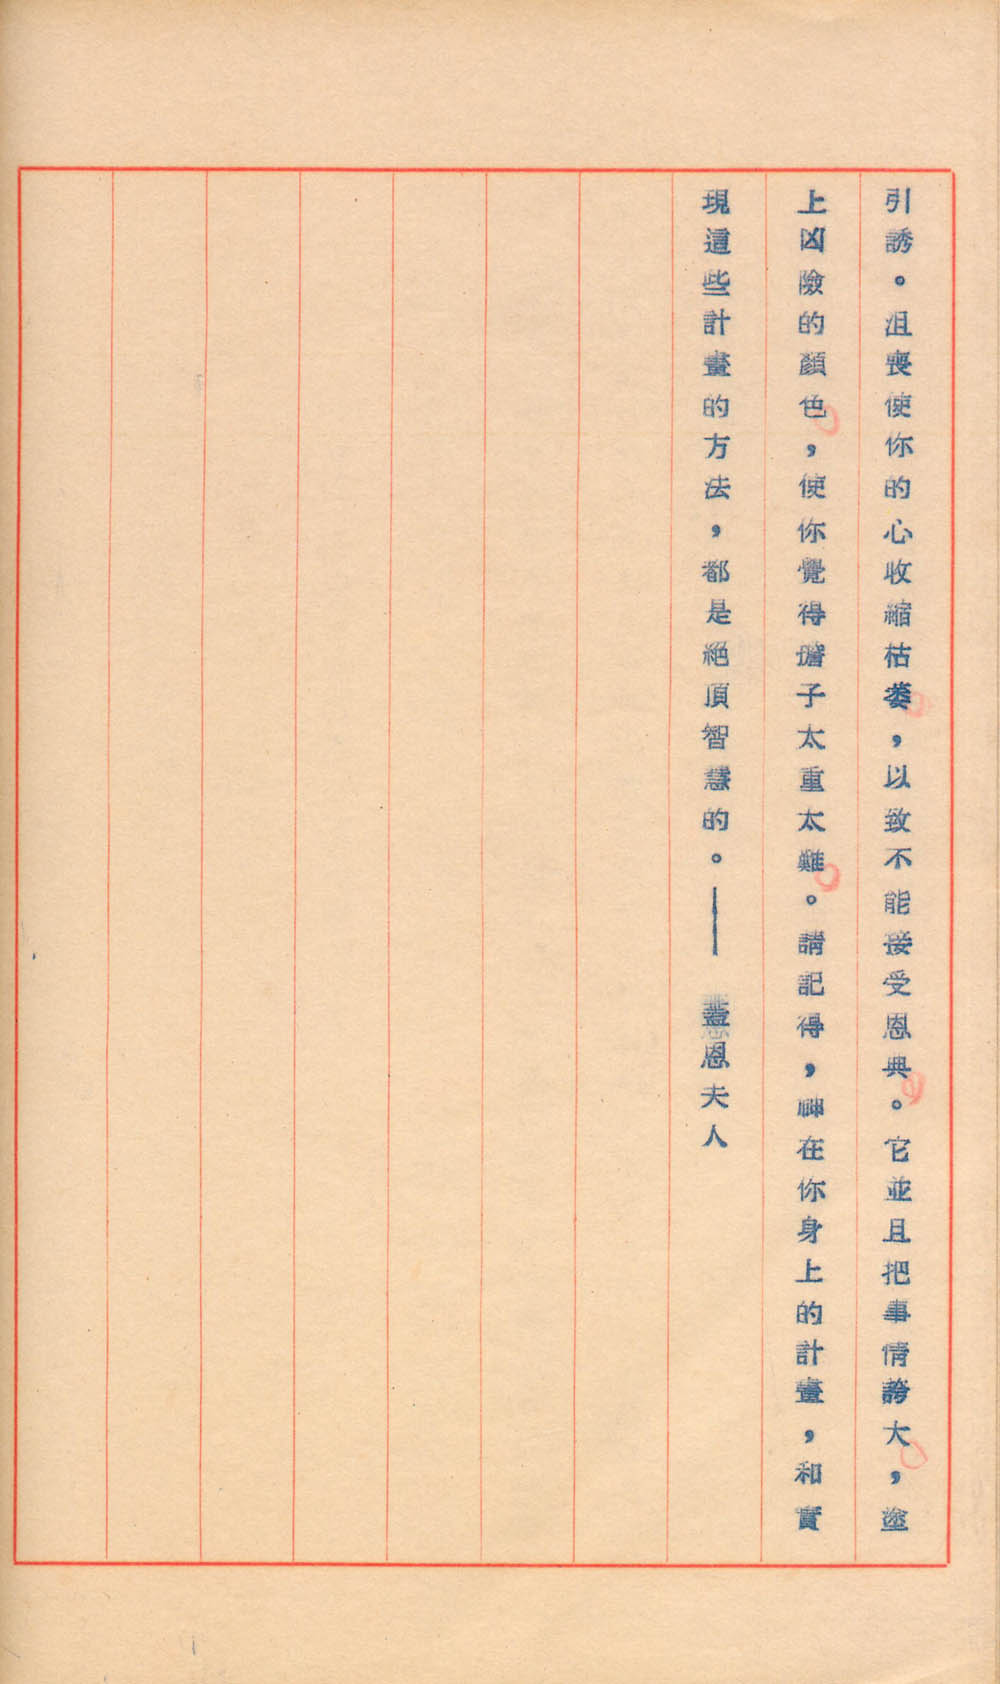 引誘。沮喪使你的心收縮枯萎，以致不能接受恩典。它並且把事情誇大，塗
上凶險的顏色，使你覺得擔子太重太難。請記得，神在你身上的計畫，和實
現這些計畫的方法，都是絕頂智慧的。——蓋恩夫人